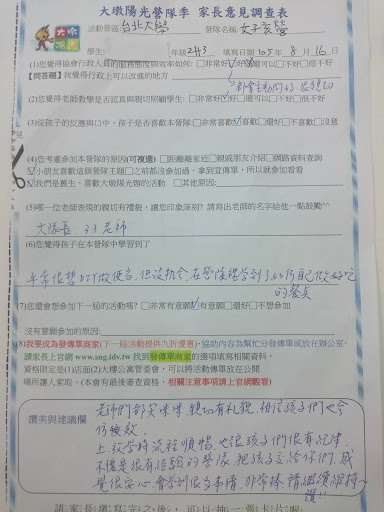 大墩陽光營隊季 家長意見調查表
大墩陽光
活動營區:台北大學 營隊名稱:女子烹飪營
學生: 年級2升3 填寫日期105年8月16日
(1)您覺得協會行政人員的服務態度與效率如何: □非常好☑好□還可以□不好□很不好
【問答題】我覺得行政上可以改進的地方
(2)您覺得老師教學是否認真與親切照顧學生: □非常好☑好□還可以□不好□很不好
(3)從孩子的反應與口中,孩子是否喜歡本營隊:□非常喜歡☑喜歡□還好□不喜歡□沒意見
(4)您考慮參加本營隊的原因(可複選) □距離離家近□親戚朋友介紹□網路資料查詢
☑小朋友喜歡這個營隊主題□之前都沒參加過,拿到宣傳單,所以就參加看看
☑我們是舊生,喜歡大墩陽光辦的活動 □其他原因:
(5)哪一位老師表現的親切有禮貌,讓您印象深刻? 請寫出老師的名字給他一點鼓勵^^
大隊長 33老師
(6)您覺得孩子在本營隊中學習到了
平常很想DIY做便當,但沒机会,在營隊裡學到了如何自己做好吃
的餐點
(7)您還會想參加下一屆的活動嗎? □非常有意願☑有意願□還好□不想參加
沒有意願參加的原因:
(8)我要成為發傳單商家(下一屆活動提供九折優惠),協助內容為幫忙分發傳單或放在辦公室。
請家長上官網 www.sng.idv.tw 找到發傳單商家的選項填寫相關資料。
資格限定是(1)店面(2)大樓公寓管委會,可以將活動傳單放在公開
場所讓人索取。(本會有最後審查資格,相關注意事項請上官網觀看)
讚美與建議欄
老師們都笑咪咪 親切有礼貌,相信孩子們也会
仿效
上放學時流程順暢,也讓孩子們很有紀律
不愧是很有經驗的營隊,把孩子交給你們,感
覺很安心,會學到很多事情,非常棒,請繼續維持~
讚!!
請家長填寫之後,可以抽一張卡片喔